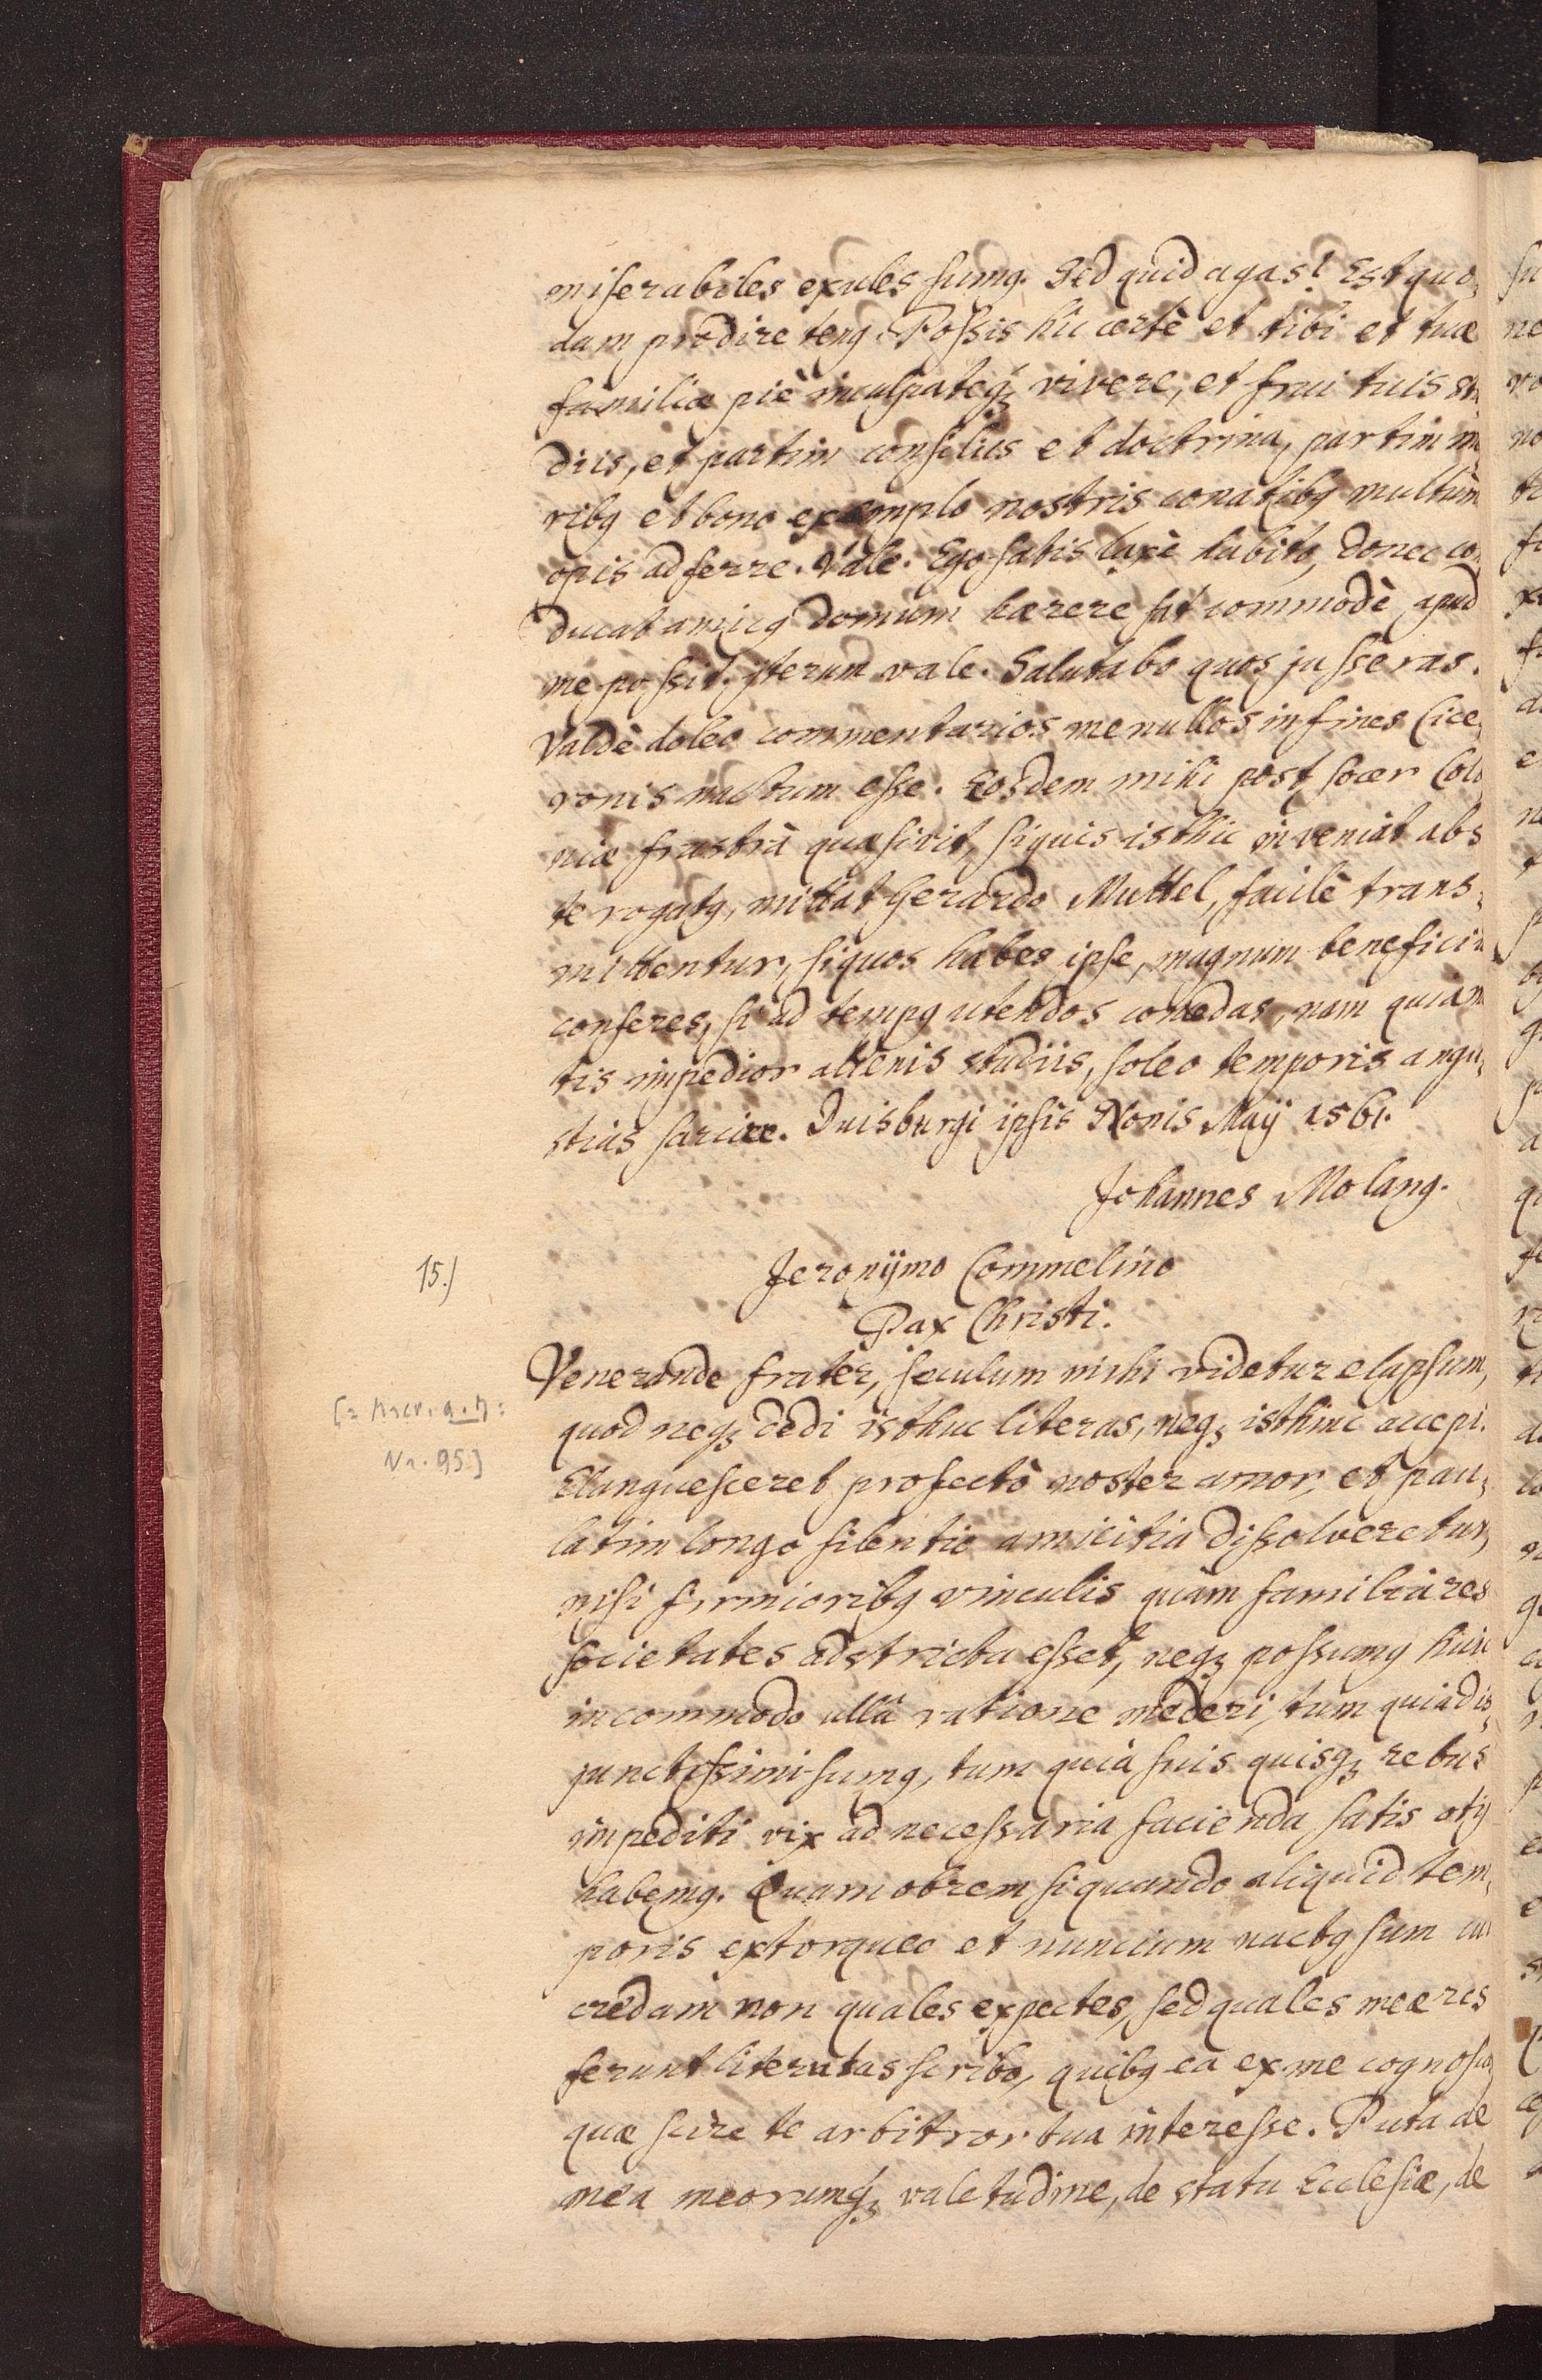 miserabiles exules sumꝰ. Sed quid agas? Est quo,
dam prodire tenꝰ. Possis hîc certè et tibi et tuæ
familiæ piè inculpateqꝫ vivere, et frui tuis stu
diis, et partim consiliis et doctrina, partim mo
ribꝰ et bono exemplo nostris conatibꝰ multùm
opis adferre. Vale. Ego satis laxè habito, donec co,
ducat amicꝰ domum hærere sat commodè apud
me possit. iterum vale. Salutabo quos jusseras.
Valdè doleo commentarios me nullos in fines Cice,
ronis nactum esse. Eosdem mihi post socer Colo
niæ frustrà quæsivit, siquis isthic inveniat abs
te rogatꝰ, mittat Gerardo Muttel, facilè trans,
mittentur, siquos habes ipse, magnum beneficiū
conferes, si ad tempꝰ utendos concedas, nam quiā
tis impedior alienis studiis, soleo temporis angu,
stias sarcire. Duisburgi ipsis Nonis Maÿ 1561.
Johannes Molanꝰ.
15.)
Jeronÿmo Commelino
Pax Christi.
Venerande frater, seculum mihi videtur elapsum,
quod neqꝫ dedi isthuc literas, neqꝫ isthinc accepi.
Nr. 95]
Elanguesceret profectò noster amor, et pau,
latim longo silentio amicitia dissolveretur,
nisi firmioribꝰ vinculis quàm familiares
societates adstricta esset, neqꝫ possumꝰ huic
incommodo ullâ ratione mederi, tum quià dis,
junctissimi sumꝰ, tum quià suis quisqꝫ rebus
impediti vix ad necessaria facienda satis otÿ
habemꝰ. Quamobrem siquando aliquid tem,
poris extorqueo et nuncium nactꝰ sum cui
credam non quales expectes, sed quales meæ res
ferunt literulas scribo, quibꝰ ea ex me cognoscas
quæ scire te arbitror tua interesse. Puta de
meâ meorumqꝫ valetudine, de statu Ecclesiæ, de